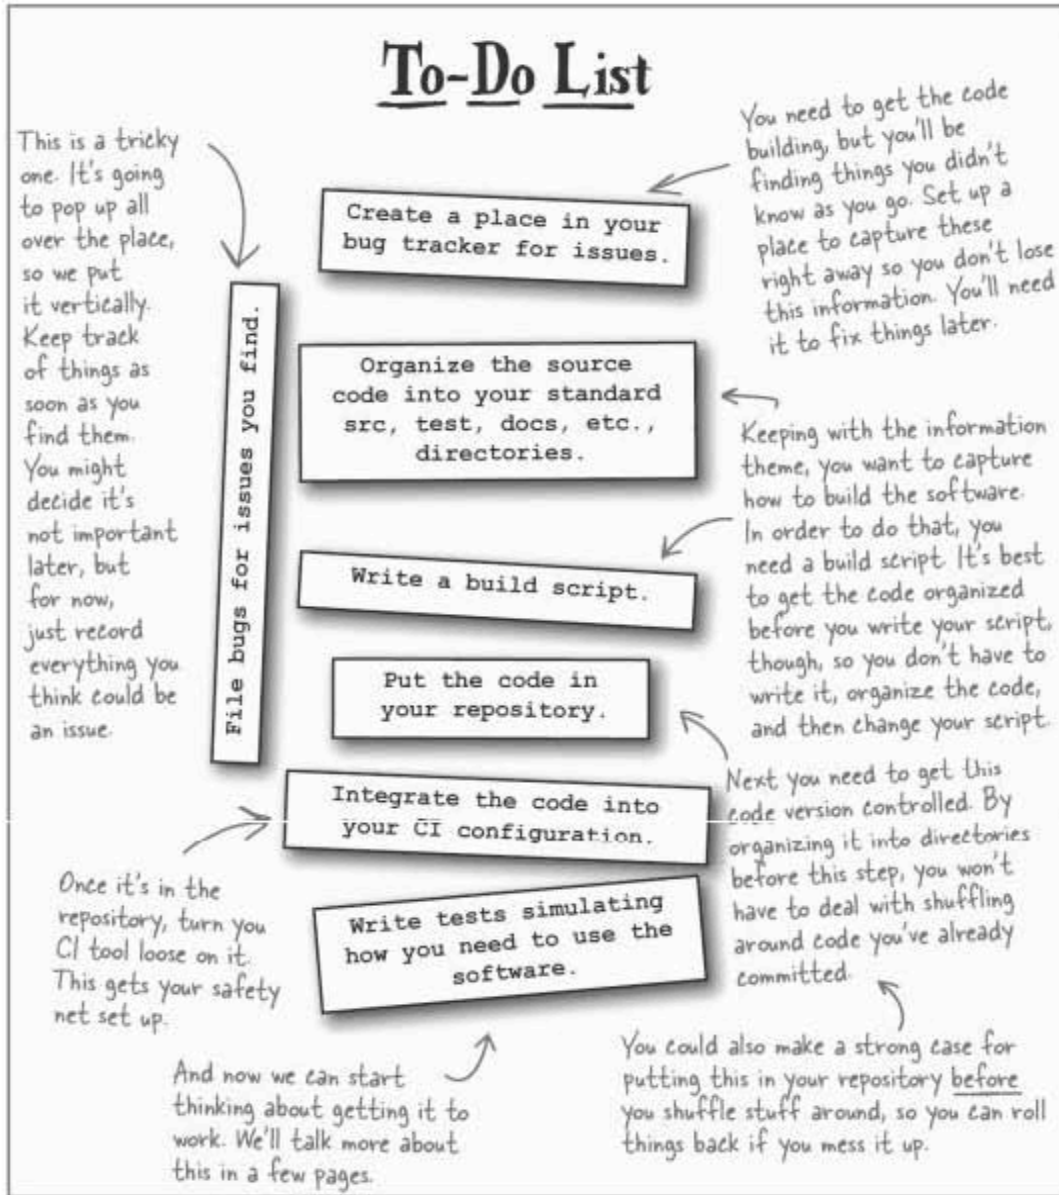 To-Do List
This is a tricky
one. It's going
to pop up all
over the place,
so we put
it vertically.
Keep track
of things as
soon as you
find them.
You might
decide it's
not important
later, but
for now,
just record
everything you
think could be
an issue.
File bugs for issues you find.
Create a place in your
bug tracker for issues.
You need to get the code
building, but you'll be
finding things you didn't
know as you go. Set up a
place to capture these
right away so you don't lose
this information. You'll need
it to fix things later.
Organize the source
code into your standard
src, test, docs, etc.,
directories.
Keeping with the information
theme, you want to capture
how to build the software.
In order to do that, you
need a build script. It's best
to get the code organized
before you write your script,
though, so you don't have to
write it, organize the code,
and then change your script.
Write a build script.
Put the code in
your repository.
Next you need to get this
code version controlled. By
organizing it into directories
before this step, you won't
have to deal with shuffling
around code you've already
committed.
You could also make a strong case for
putting this in your repository before
you shuffle stuff around, so you can roll
things back if you mess it up.
Integrate the code into
your CI configuration.
Once it's in the
repository, turn you
CI tool loose on it.
This gets your safety
net set up.
Write tests simulating
how you need to use the
software.
And now we can start
thinking about getting it to
work. We'll talk more about
this in a few pages.